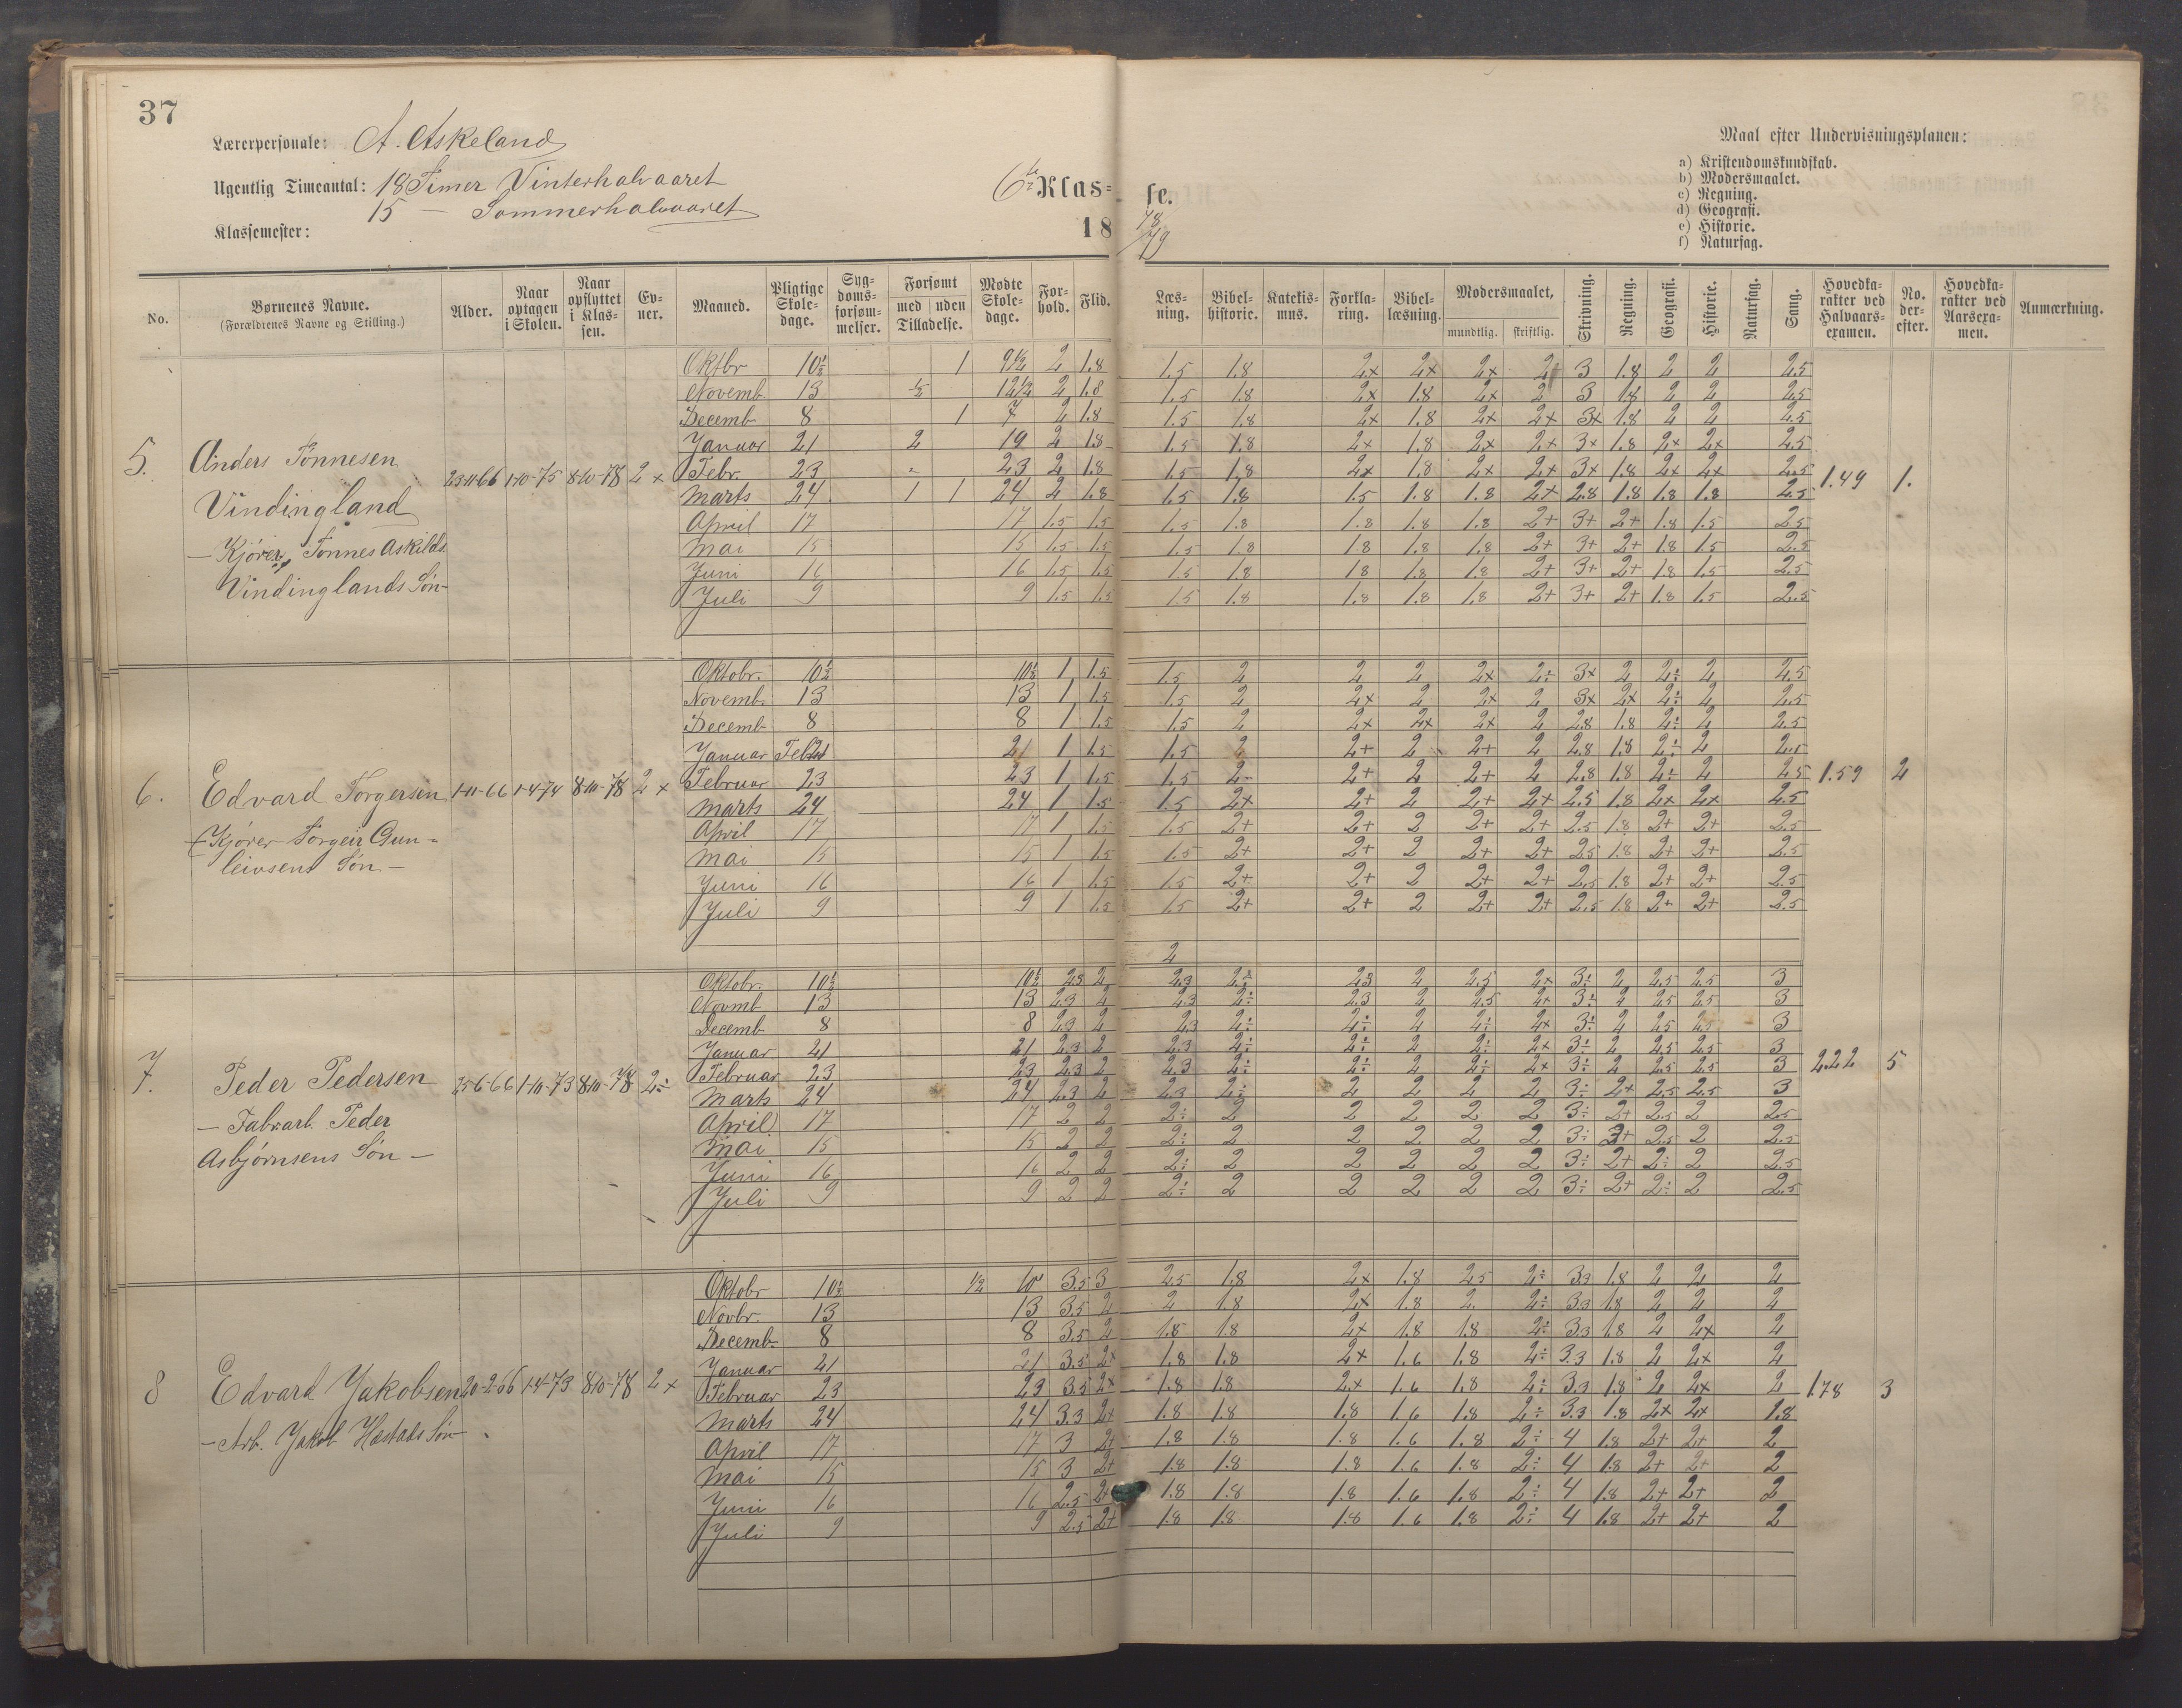 37
Lærerpersonale: A. Askeland
Ugentlig Timeantal: 18 Timer Vinterhalvaaret
15 — Sommerhalvaaret
Klassemester:
6te Klasse.
1878/79
Maal efter Undervisningsplanen:
a) Kristendomskundskab.
b) Modersmaalet.
c) Regning.
d) Geografi.
e) Historie.
f) Naturfag.
No. Børnenes Navne. (Forældrenes Navne og Stilling.) Alder. Naar optagen i Skolen. Naar opflyttet i Klassen. Evner. Maaned. Pligtige Skoledage. Sygdomsforsømmelser. Forsømt med uden Tilladelse. Mødte Skoledage. Forhold. Flid. Læsning. Bibelhistorie. Katekismus. Forklaring. Bibellæsning. Modersmaalet, mundtlig. skriftlig. Skrivning. Regning. Geografi. Historie. Naturfag. Sang. Hovedkarakter ved Halvaarsexamen. No. derefter. Hovedkarakter ved Aarsexamen. Anmærkning.
5. Anders Tønnesen
Vindingland
— Kjører Tønnes Askilds.
Vindinglands Søn —
23-11-66 1-10-75 8-10-78 2x
Oktbr 10½ 1 9½ 2 1.8 1.5 1.8 2x 2x 2x 2 3 1.8 2 2 2.5
Novemb. 13 ½ 12½ 2 1.8 1.5 1.8 2x 1.8 2x 2 3 1.8 2 2 2.5
Decemb 8 1 7 2 1.8 1.5 1.8 2x 1.8 2x 2x 3x 1.8 2 2 2.5
Januar 21 2 19 2 1.8 1.5 1.8 2x 1.8 2x 2x 3x 1.8 2x 2x 2.5
Febr. 23 23 2 1.8 1.5 1.8 2x 1.8 2x 2x 3x 1.8 2x 2x 2.5
Marts 24 1 1 24 2 1.8 1.5 1.8 1.5 1.8 1.8 2x 2.8 1.8 1.8 1.8 2.5
1.49 1.
April 17 17 1.5 1.5 1.5 1.8 1.8 1.8 1.8 2+ 3+ 2+ 1.8 1.5 2.5
Mai 15 15 1.5 1.5 1.5 1.8 1.8 1.8 1.8 2+ 3+ 2+ 1.8 1.5 2.5
Juni 16 16 1.5 1.5 1.5 1.8 1.8 1.8 1.8 2+ 3+ 2+ 1.8 1.5 2.5
Juli 9 9 1.5 1.5 1.5 1.8 1.8 1.8 1.8 2+ 3+ 2+ 1.8 1.5 2.5
6. Edvard Torgersen
— Kjører Torgeir Gun-
leivsens Søn —
1-11-66 1-4-74 8-10-78 2x
Oktobr. 10½ 10½ 1 1.5 1.5 2 2 2 2x 2÷ 3x 2 2÷ 2 2.5
Novemb. 13 13 1 1.5 1.5 2 2x 2 2x 2 3x 2x 2÷ 2 2.5
Decemb 8 8 1 1.5 1.5 2 2x 2x 2x 2 2.8 1.8 2÷ 2 2.5
Januar 21 21 1 1.5 1.5 2 2+ 2 2+ 2 2.8 1.8 2÷ 2 2.5
Februar 23 23 1 1.5 1.5 2 2+ 2 2+ 2 2.8 1.8 2÷ 2 2.5
1.59 2
Marts 24 24 1 1.5 1.5 2x 2+ 2 2+ 2x 2.5 1.8 2x 2x 2.5
April 17 17 1 1.5 1.5 2+ 2+ 2 2+ 2+ 2.5 1.8 2+ 2+ 2.5
Mai 15 15 1 1.5 1.5 2+ 2+ 2 2+ 2+ 2.5 1.8 2+ 2+ 2.5
Juni 16 16 1 1.5 1.5 2+ 2+ 2 2+ 2+ 2.5 1.8 2+ 2+ 2.5
Juli 9 9 1 1.5 1.5 2+ 2+ 2 2+ 2+ 2.5 1.8 2+ 2+ 2.5
2
7. Peder Pedersen
— Fabrarb. Peder
Asbjørnsens Søn —
25-6-66 1-10-73 8-10-78 2÷
Oktobr. 10½ 10½ 2.3 2 2.3 2÷ 2.3 2 2.5 2x 3÷ 2 2.5 2.5 3
Novmb 13 13 2.3 2 2.3 2÷ 2.3 2 2.5 2x 3÷ 2 2.5 2.5 3
Decemb 8 8 2.3 2 2.3 2÷ 2÷ 2 2÷ 2x 3÷ 2 2.5 2.5 3
Januar 21 21 2.3 2 2.3 2÷ 2÷ 2 2÷ 2x 3÷ 2 2.5 2.5 3
Februar 23 23 2.3 2 2.3 2÷ 2÷ 2 2÷ 2x 3÷ 2 2.5 2.5 3
2.22 5
Marts 24 24 2.3 2 2.3 2÷ 2 2 2 2 3÷ 2x 2.5 2.5 3
April 17 17 2 2 2÷ 2 2 2 2 2 3÷ 2+ 2.5 2 2.5
Mai 15 15 2 2 2÷ 2 2 2 2 2 3÷ 2+ 2.5 2 2.5
Juni 16 16 2 2 2÷ 2 2 2 2 2 3÷ 2+ 2÷ 2 2.5
Juli 9 9 2 2 2÷ 2 2 2 2 2 3÷ 2+ 2÷ 2 2.5
8 Edvard Jakobsen
— Arb. Jakob Hæstads Søn —
20-2-66 1-4-73 8-10-78 2x
Oktobr 10½ ½ 10 3.5 3 2.5 1.8 2x 1.8 2.5 2÷ 3.3 1.8 2 2 2
Novbr. 13 13 3.5 2 2 1.8 2x 1.8 2 2÷ 3.3 1.8 2 2 2
Decemb. 8 8 3.5 2 1.8 1.8 2x 1.8 1.8 2÷ 3.3 1.8 2 2x 2
Januar 21 21 3.5 2x 1.8 1.8 2x 1.6 1.8 2÷ 3.3 1.8 2 2x 2
Februar 23 23 3.5 2x 1.8 1.8 2x 1.6 1.8 2÷ 3.3 1.8 2 2x 2
1.78 3
Marts 24 24 3.3 2x 1.8 1.8 1.8 1.6 1.8 2÷ 3.3 1.8 2x 2x 1.8
April 17 17 3 2+ 1.8 1.8 1.8 1.6 1.8 2÷ 4 1.8 2+ 2+ 2
Mai 15 15 3 2+ 1.8 1.8 1.8 1.6 1.8 2÷ 4 1.8 2+ 2+ 2
Juni 16 16 2.5 2+ 1.8 1.8 1.8 1.6 1.8 2÷ 4 1.8 2+ 2+ 2
Juli 9 9 2.5 2+ 1.8 1.8 1.8 1.6 1.8 2÷ 4 1.8 2+ 2+ 2